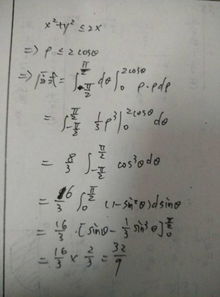 x²+y² ≤ 2x
=) ρ ≤ 2cosθ
=) 原式= ∫_{-π/2}^{π/2} dθ ∫_0^{2cosθ} ρ·ρdρ
= ∫_{-π/2}^{π/2} 1/3 ρ³ |_0^{2cosθ} dθ
= 8/3 ∫_{-π/2}^{π/2} cos³θ dθ
= 16/3 ∫_0^{π/2} (1-sin²θ) dsinθ
= 16/3 · [sinθ - 1/3 sin³θ]_0^{π/2}
= 16/3 × 2/3 = 32/9